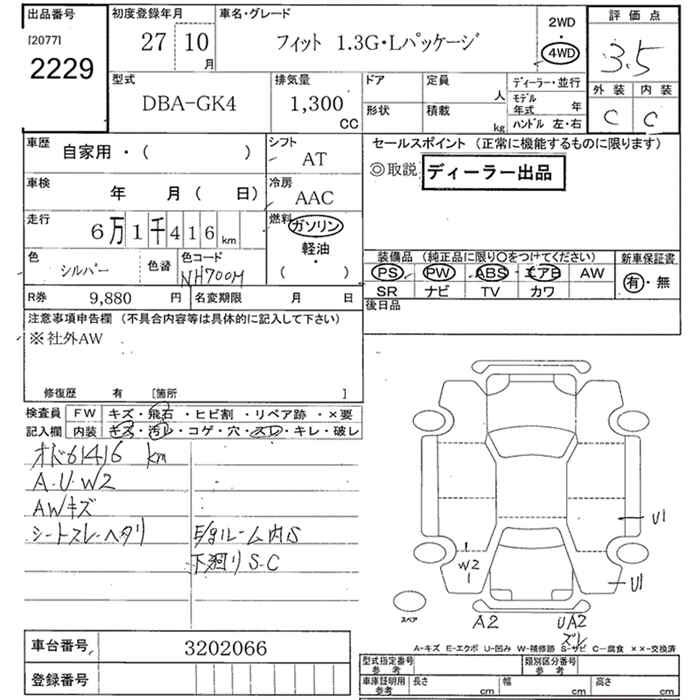 出品番号 初度登録年月 車名・グレード 2WD 評価点
[2077] 27 10 月 フィット 1.3G・Lパッケージ 4WD 3.5
2229 外装 内装
型式 排気量 ドア 定員 人 ディーラー・並行 C C
DBA-GK4 1,300 CC 形状 積載 kg モデル年式 年
ハンドル 左・右
車歴 自家用・( ) シフト AT セールスポイント (正常に機能するものに限ります)
◎取説 ディーラー出品
車検 年 月 ( 日) 冷房 AAC
走行 6万1千416 km 燃料 ガソリン
軽油・
( )
色 シルバー 色替 色コード NH700M 装備品 (純正品に限り○をつけてください) 新車保証書
PS PW ABS エアB AW 有・無
SR ナビ TV カワ
R券 9,880 円 名変期限 月 日 後日品
注意事項申告欄 (不具合内容等は具体的に記入して下さい)
※社外AW
修復歴 有 [箇所 ]
検査員 FW キズ・飛石・ヒビ割・リペア跡・×要
記入欄 内装 キズ・汚レ・コゲ・穴・スレ・キレ・破レ
オド61416 km
A・U・W2
AWキズ
シートスレーヘタリ E/gルーム内S
下廻りS・C
U1
W2
U1
スペア A2 UA2
スレ
A-キズ E-エクボ U-凹み W-補修跡 S-サビ C-腐食 ××-交換済
車台番号 3202066
型式指定番号 参考 類別区分番号 参考
登録番号 車庫証明用 参考 長さ cm 幅 cm 高さ cm